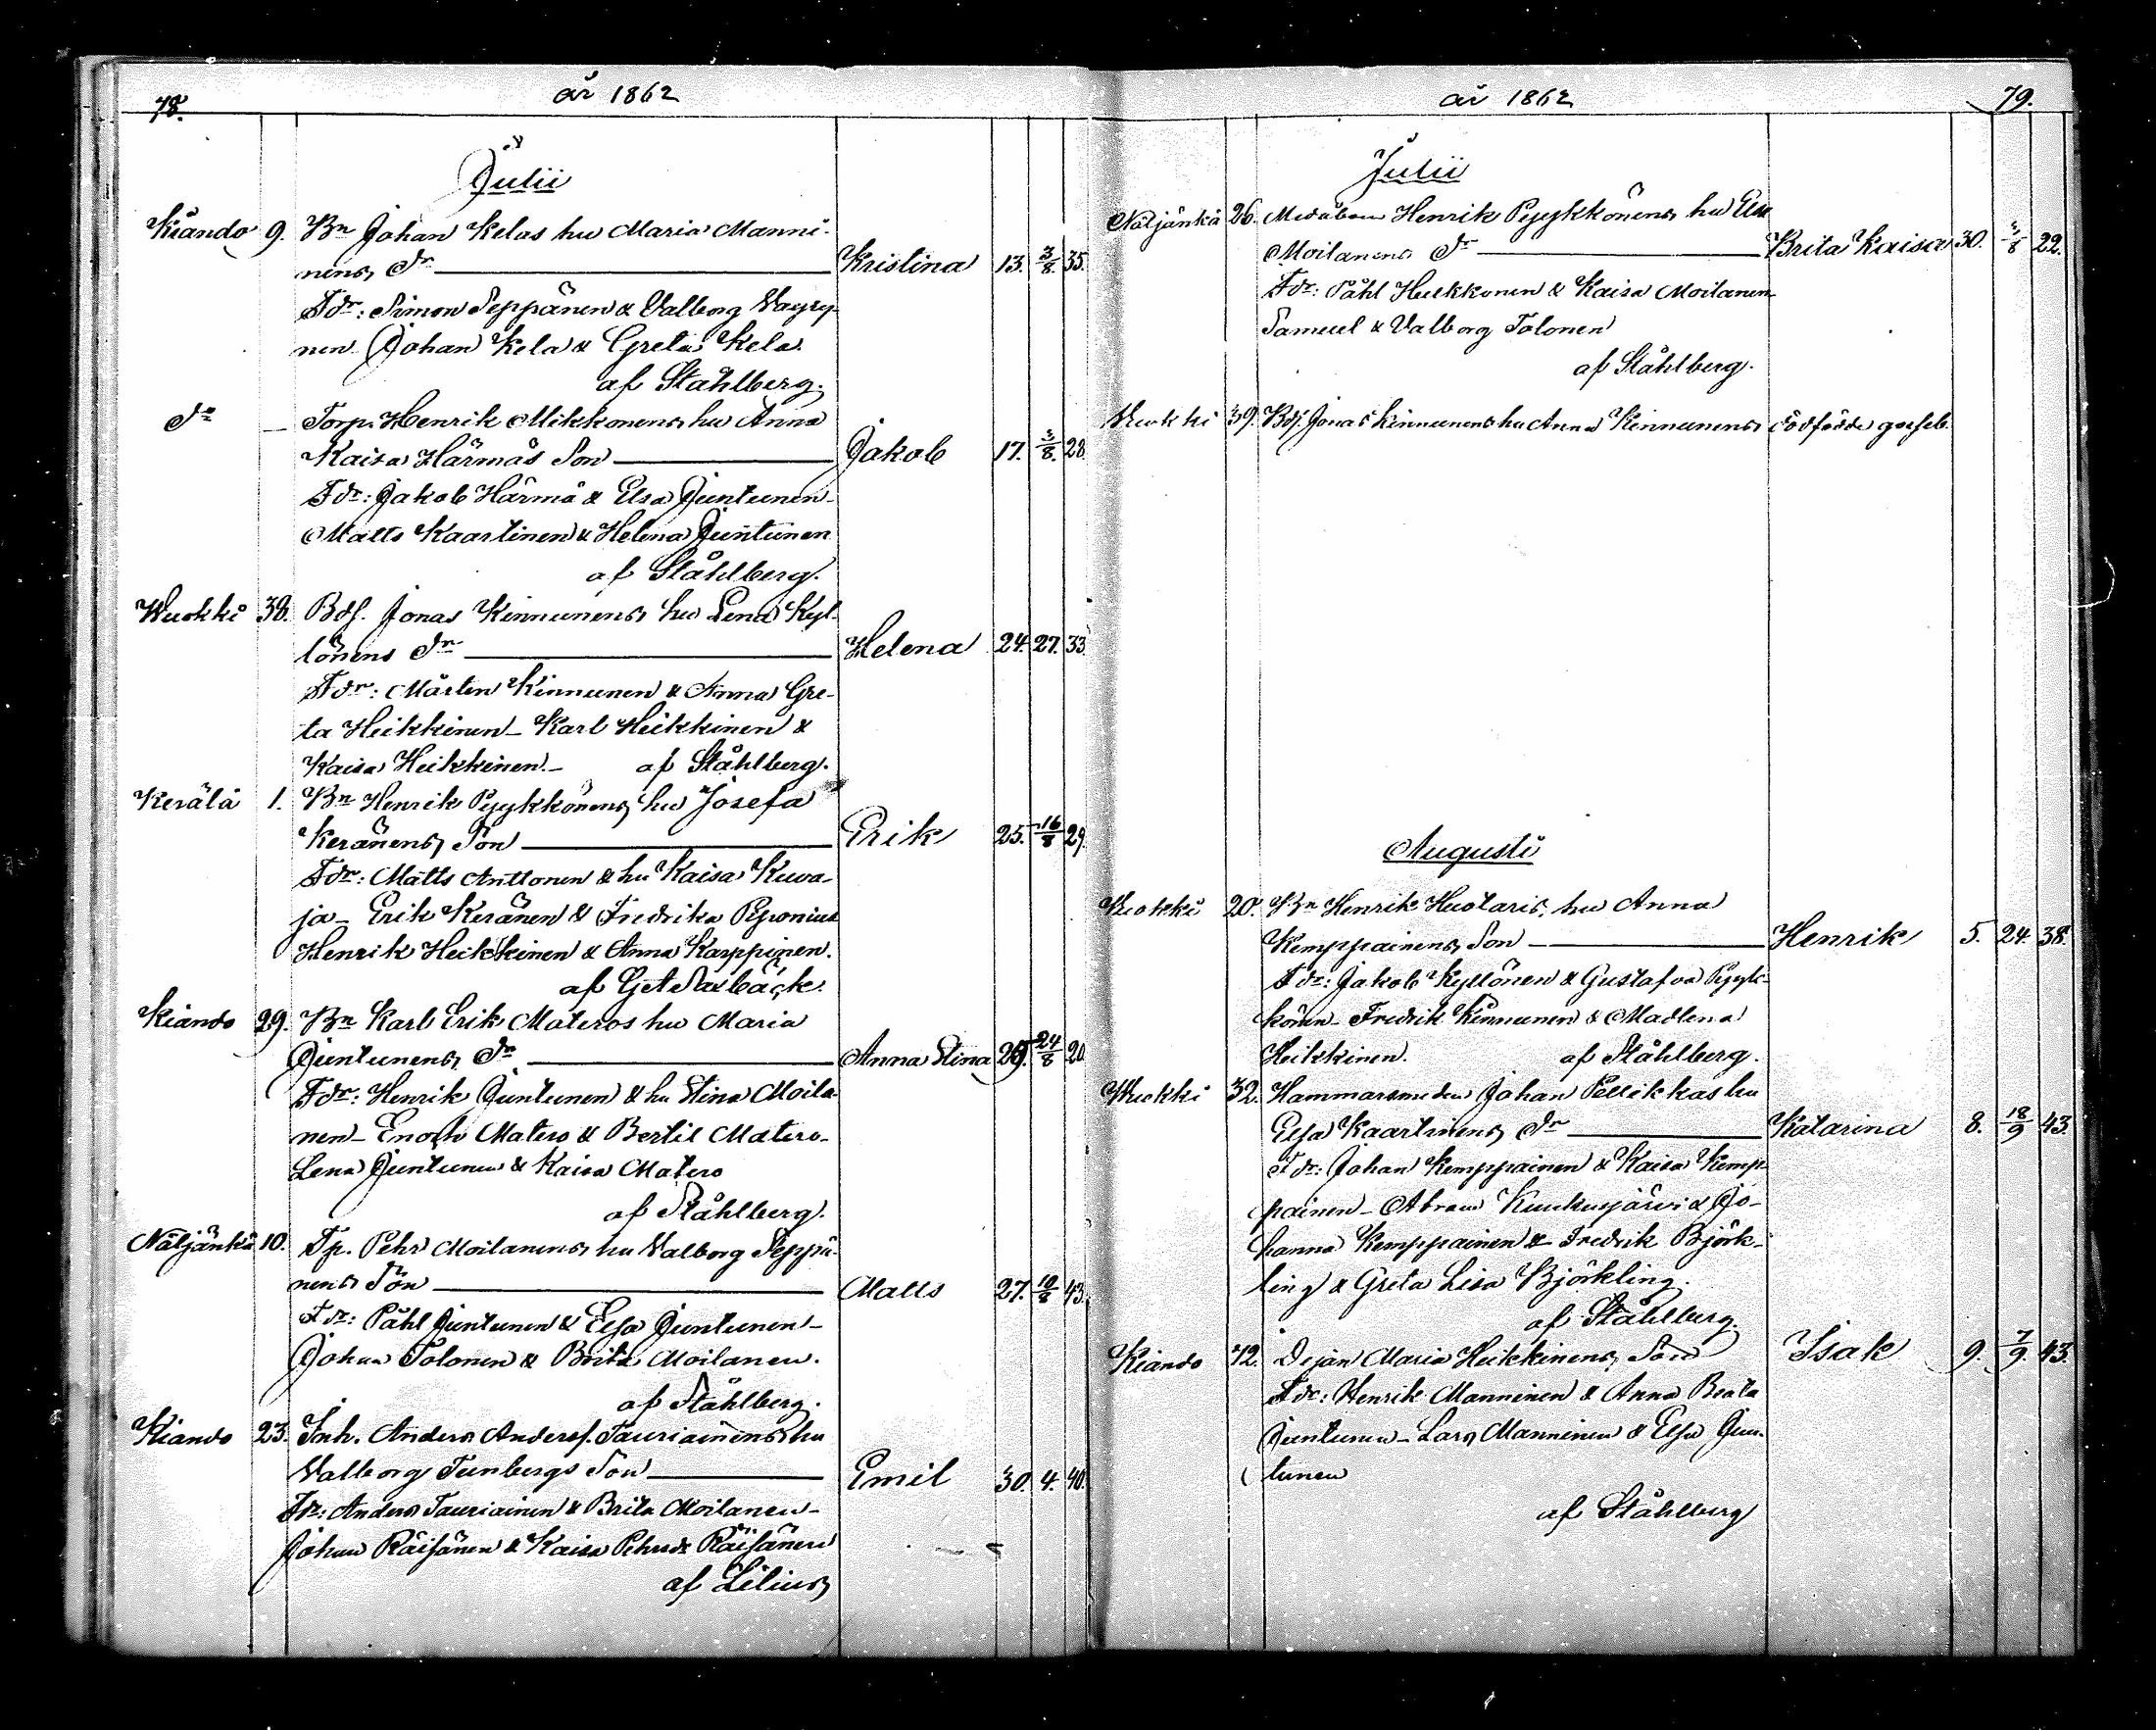 78.
år 1862
Julii
Kiando 9. Bn Johan Kelas hu Maria Manni-
nens Dr Kristina 13. 3/8. 35.
Fdr: Simon Seppänen & Valborg Väyry-
nen Johan Kela & Greta Kela.
af Ståhlberg.
Do – Torp. Henrik Mikkonens hu Anna
Kaisa Härmäs Son Jakob 17. 3/8. 28.
Fdr: Jakob Härmä & Elsa Juntunen-
Matts Kaartinen & Helena Juntunen
af Ståhlberg.
Wuokki 38. Bdf. Jonas Kinnunens hu Lena Kyl-
lönens Dr Helena 24. 27. 33.
Fdr: Mårten Kinnunen & Anna Gre-
ta Heikkinen – Karl Heikkinen &
Kaisa Heikkinen. – af Ståhlberg.
Kerälä 1. Bn Henrik Pyykkönens hu Josefa
Keränens Son Erik 25. 16/8 29.
Fdr: Matts Anttonen & hu Kaisa Kuva-
ja – Erik Keränen & Fredrika
Henrik Heikkinen & Anna Karppinen.
af
Kiando 29. Bn Karl Erik Materos hu Maria
Juntunens Dr Anna Stina 24/8 20.
Fdr: Henrik Juntunen & hu Stina Moila-
nen – Enoch Matero & Bertil Matero-
Lena Juntunen & Kaisa Matero
af Ståhlberg.
Näljänkä 10. Tp. Pehr Moilanens hu Valborg Seppä-
nens Son Matts 27. 10/8 43.
Fdr: Påhl Juntunen & Elsa Juntunen –
Johan Tolonen & Brita Moilanen.
af Ståhlberg.
Kiando 23. Inh. Anders Andersf. Tauriainens hu
Valborg Tunbergs Son Emil 30. 4. 40.
Fdr: Anders Tauriainen & Brita Moilanen –
Johan Räisänen & Kaisa Pehrsdr Räisänen
af Lilius
år 1862
79.
Julii
Näljänkä 26. Henrik Pyykkönens hu
Moilanens Dr Brita Kaisa 30. 3/8 22.
Fdr: Påhl Heikkonen & Kaisa Moilanen
Samuel & Valborg Tolonen
af Ståhlberg.
Wuokki 39. Bdf. Jonas Kinnunens hu Anna Kinnunens dödfödde gosseb.
Augusti
Wuokki 20. Bn Henrik Huotaris, hu Anna
Kemppainens Son Henrik 5. 24. 38.
Fdr: Jakob Kyllönen & Gustafva Pyyk-
könen – Fredrik Kinnunen & Madlena
Heikkinen. af Ståhlberg.
Wuokki 32. Hammarsmeden Johan Pellikkas hu
Elsa Kaartinens Dr Katarina 8. 18/9 43.
Fdr: Johan Kemppainen & Kaisa Kemp-
painen – Abram Kuukusjärvi & Jo-
hanna Kemppainen & Fredrik Björk-
ling & Greta Lisa Björkling.
af Ståhlberg.
Kiando 42. Dejan Maria Heikkinens Son Isak 9. 7/9. 43.
Fdr: Henrik Manninen & Anna Beata
Juntunen – Lars Manninen & Elsa Jun-
tunen
af Ståhlberg